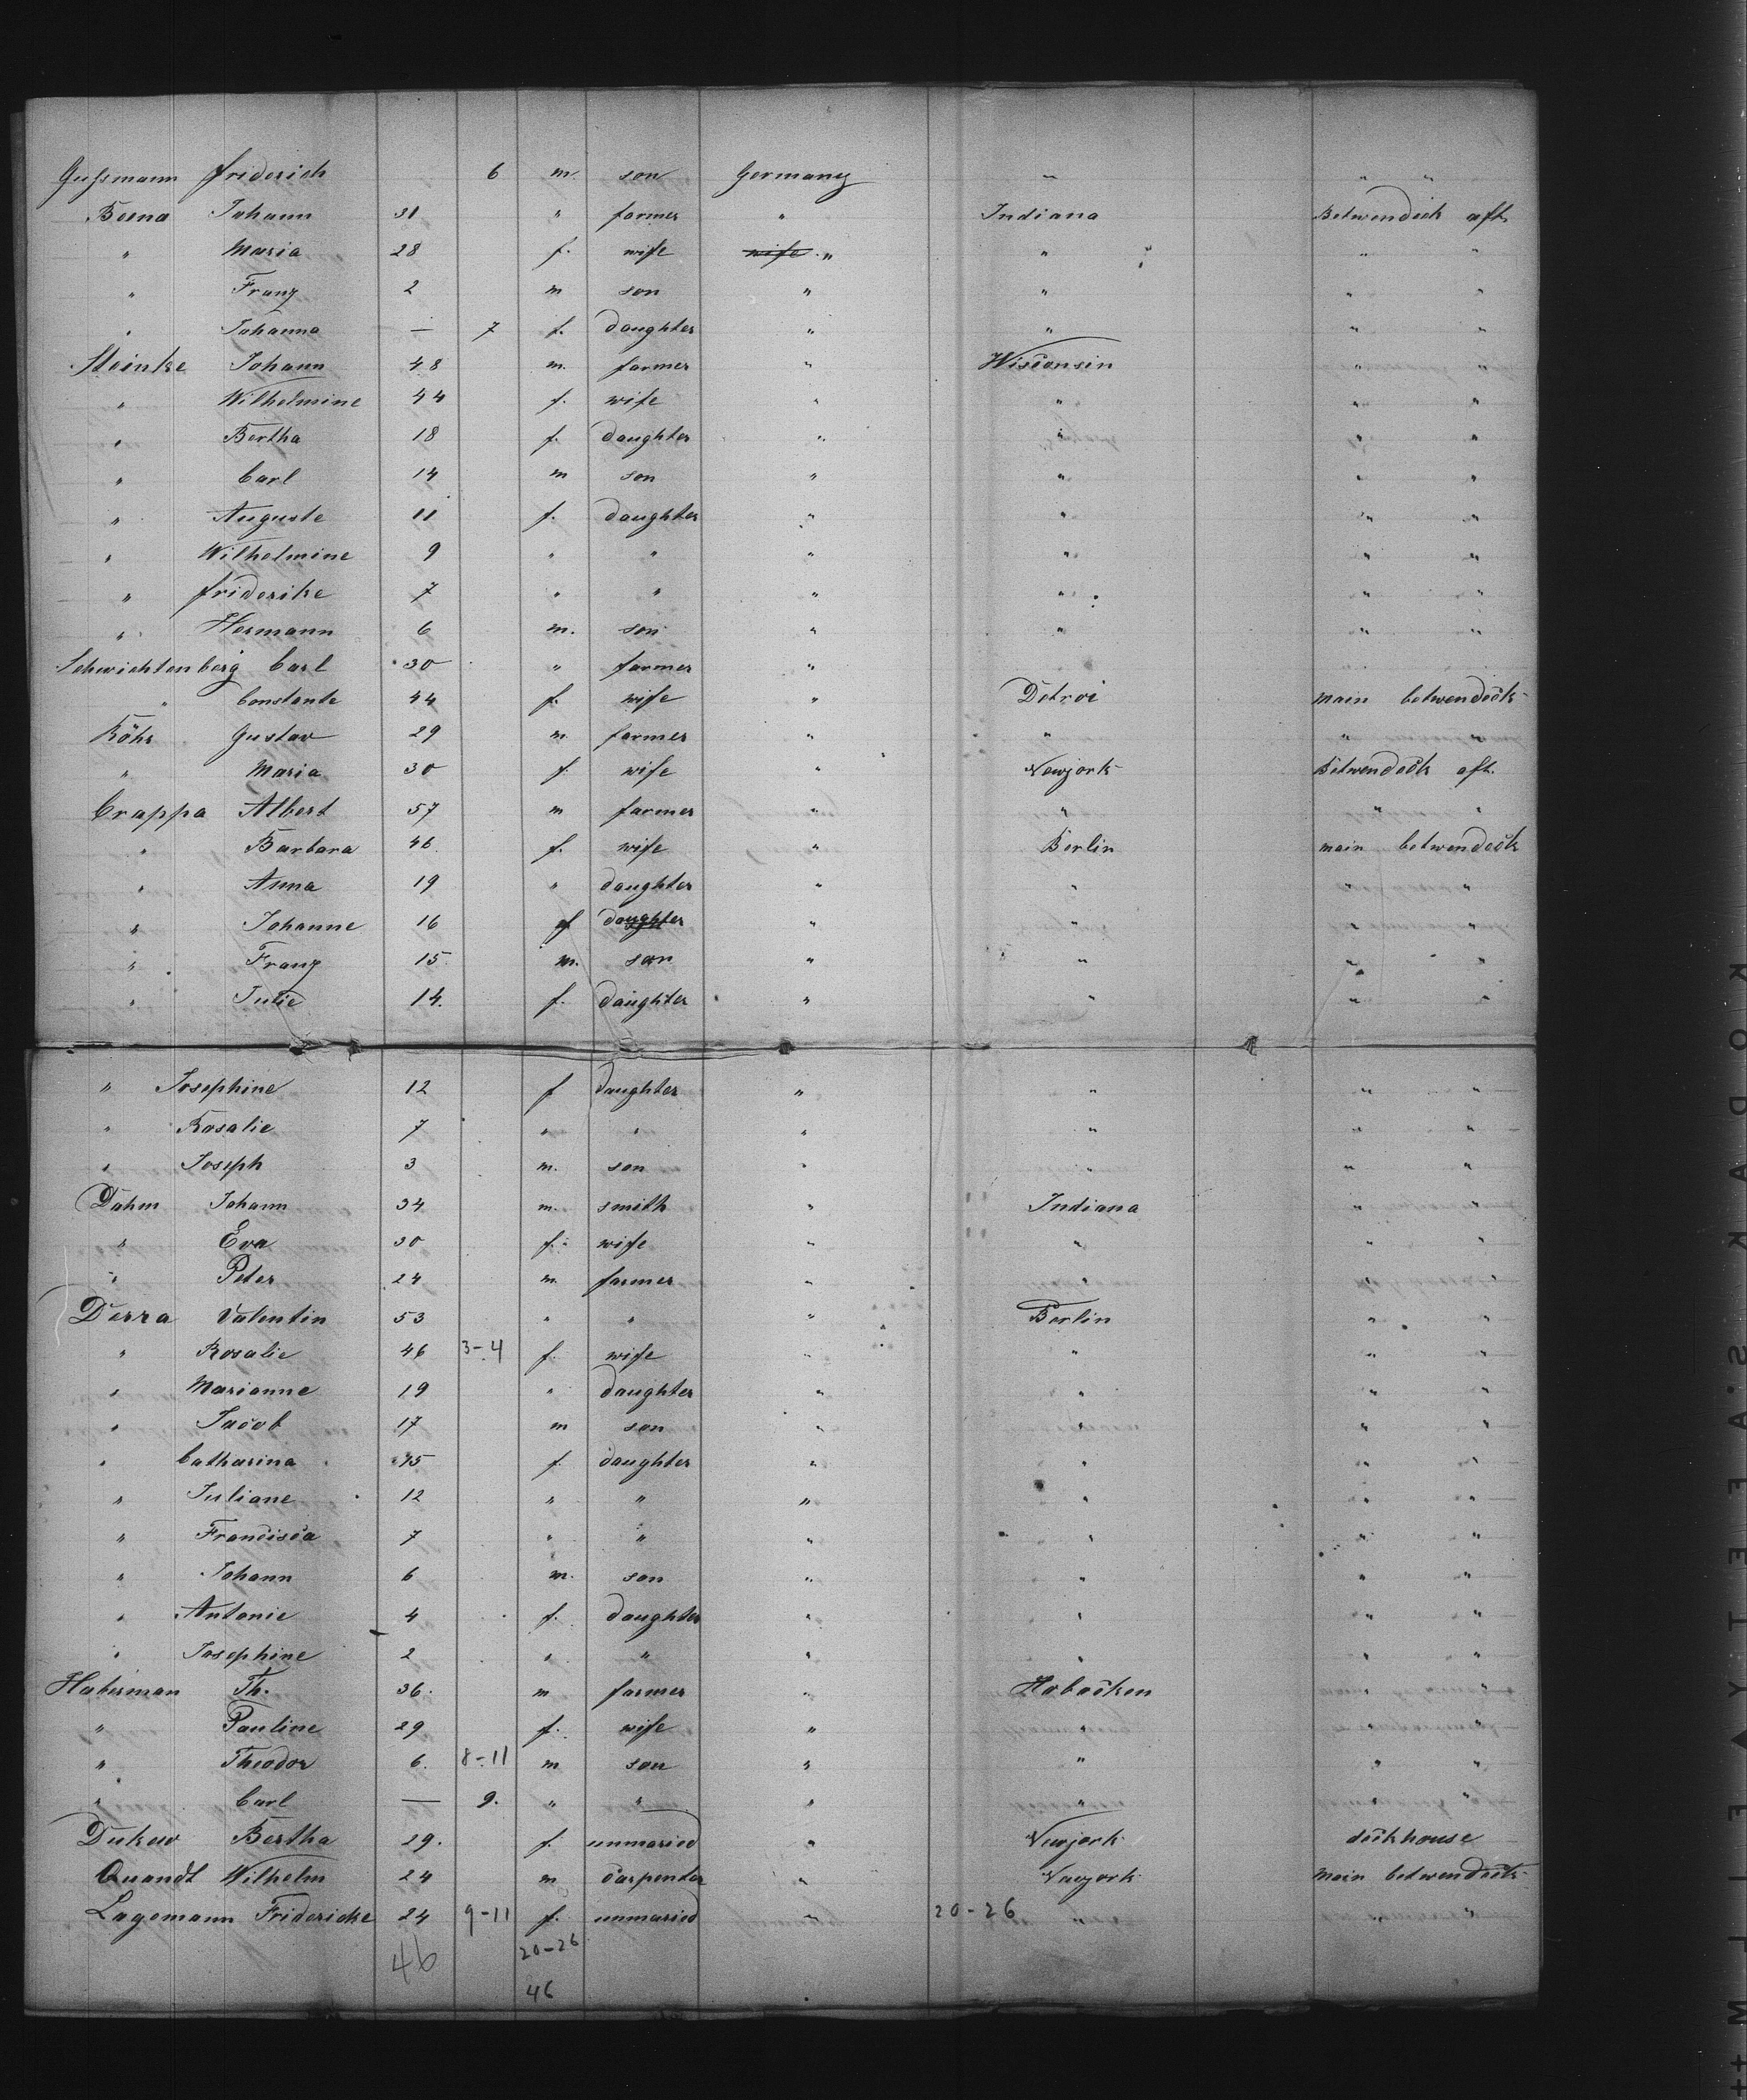 Gussmann Friderich 6 m. son Germany " " "
Berna Johann 31 " farmer " Indiana Betwendeck aft.
" Maria 28 f. wife wife " " " "
" Franz 2 m son " " " "
" Johanna — 7 f. daughter " " " "
Steinke Johann 48 m. farmer " Wisconsin " "
" Wilhelmine 44 f. wife " " " "
" Bertha 18 f. daughter " " " "
" Carl 14 m son " " " "
" Auguste 11 f. daughter " " " "
" Wilhelmine 9 " " " " " "
" Friderike 7 " " " " " "
" Hermann 6 m. son " " " "
Schwichtenberg Carl 30 " farmer " " " "
" Constante 44 f. wife " Detroi main betwendeck
Röhr Gustav 29 m farmer " " " "
" Maria 30 f. wife " Newjork Betwendeck aft.
Crappa Albert 57 m farmer " " " "
" Barbara 46 f. wife " Berlin main betwendeck
" Anna 19 " daughter " " " "
" Johanne 16 f daughter " " " "
" Franz 15 m. son " " " "
" Julie 14. f. daughter " " " "
" Josephine 12 f daughter " " " "
" Rosalie 7 " " " " " "
" Joseph 3 m. son " " " "
Dahm Johann 34 m. smith " Indiana " "
" Eva 30 f. wife " " " "
" Peter 24 m. farmer " " " "
Derra Valentin 53 " " " Berlin " "
" Rosalie 46 3-4 f. wife " " " "
" Marianne 19 " daughter " " " "
" Jacob 17 m son " " " "
" Catharina 15 f. daughter " " " "
" Juliane 12 " " " " " "
" Francisca 7 " " " " " "
" Johann 6 m. son " " " "
" Antonie 4 f. daughter " " " "
" Josephine 2 " " " " " "
Haberman Th. 36. m farmer " Hobocken " "
" Pauline 29 f. wife " " " "
" Theodor 6. 8-11 m son " " " "
" Carl — 9. " " " " " "
Dukew Bertha 29. f. unmaried " Newjork deckhouse
Quandt Wilhelm 24 m carpenter " Newjork Main betwendeck
Lagemann Fridericke 24 9-11 f. unmaried " 20-26 " " "
46 20-26
46
KODAK SAFETY FILM ++